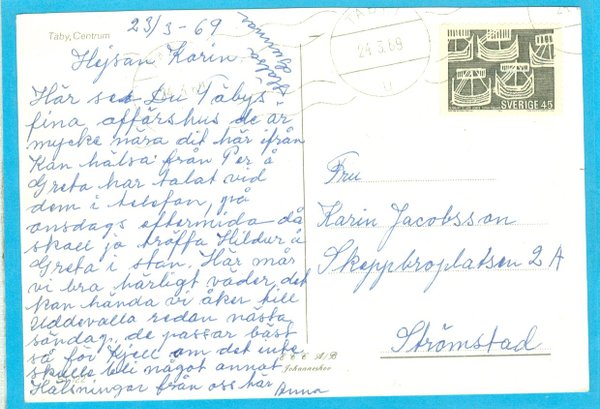 23/3-69
Täby, Centrum
Hälsa
Hejsan Karin.
Här ser Du Täbys
fina affärshus de är
mycke nära dit här ifrån
Kan hälsa från Per å
Greta har talat vid
dem i telefon, på
onsdags eftermida då
skall ja träffa Hildur å
Greta i stan. Här mår
vi bra härligt väder, det
kan hända vi åker till
Uddevalla redan nästa
söndag, de passar bäst
så för Kjell om det inte
skulle bli något annat
Hälsningar från oss här
Anna
24.3.69
SVERIGE 45
Fru
Karin Jacobsson
Skeppbroplatsen 2 A
Strömstad
A/B
Johanneshov